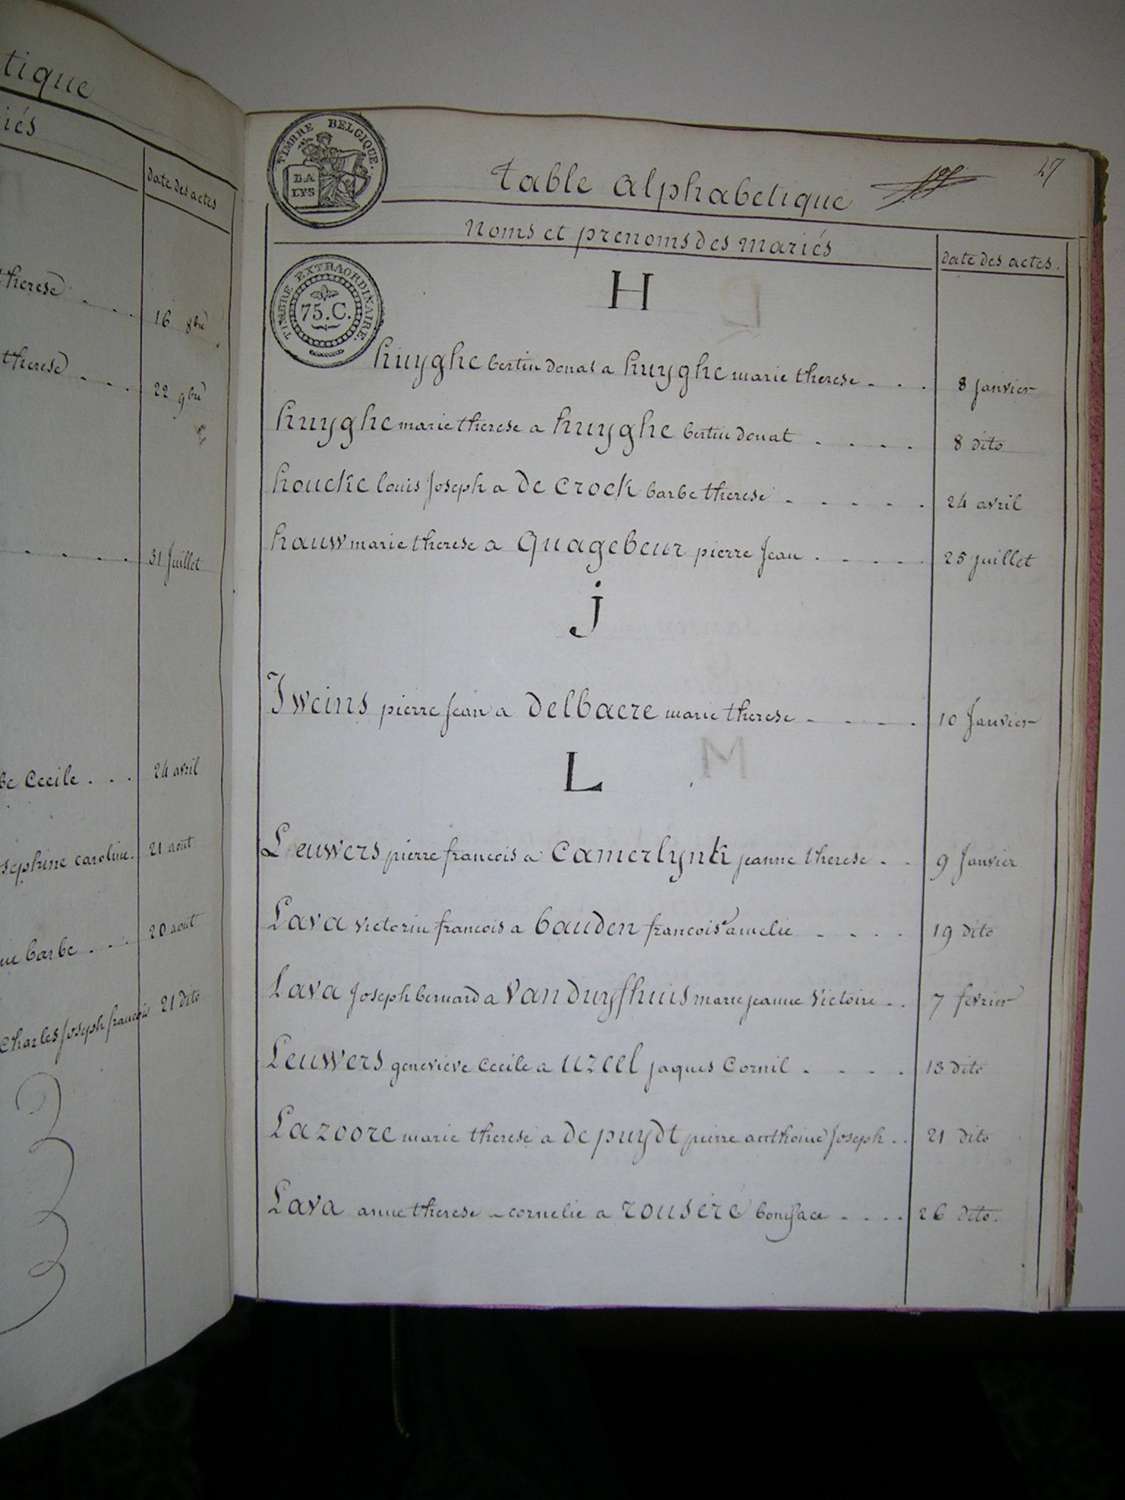 tique
riés
date des actes
therese
16 8bre
therese
22 9bre
31 Juillet
be Cecile
24 avril
sephine caroline
21 aout
barbe
20 aout
charles Joseph francois
21 dito
TIMBRE BELGIQUE.
D.A
LYS
table alphabetique
47
noms et prenoms des mariés
date des actes.
TIMBRE EXTRAORDINAIRE.
75.C.
H
huyghe bertin donat a huyghe marie therese 8 janvier
huyghe marie therese a huyghe bertin donat 8 dito
houcke louis Joseph a De crock barbe therese 24 avril
hauw marie therese a Quagebeur pierre Jean 25 juillet
j
Iweins pierre Jean a Delbaere marie therese 10 Janvier
L
Leuwers pierre francois a Camerlynk jeanne therese 9 Janvier
Lava victorin francois a bauden francois amelie 19 dito
Lava Joseph bernard a Van Duyfhuis marie jeanne Victoire 7 fevrier
Leuwers genevieve Cecile a uzeel jaques Cornil 13 dito
Lazoore marie therese a de puydt pierre anthoine Joseph 21 dito
Lava anne therese cornelie a rouseré boniface 26 dito.